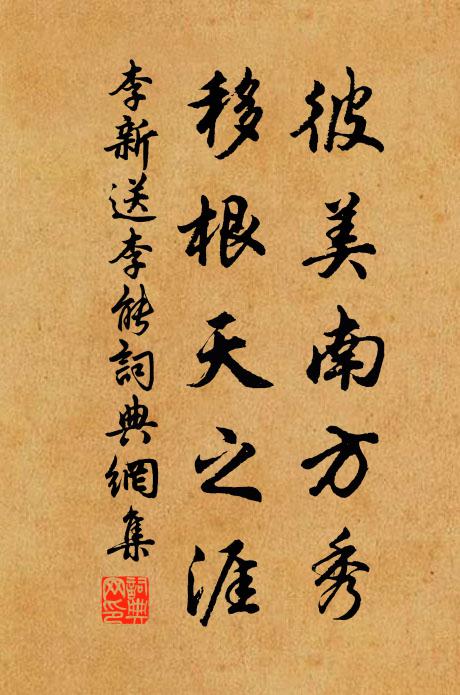 彼美南方秀
移根天之涯
李新送李能詞典網集
詞典網印